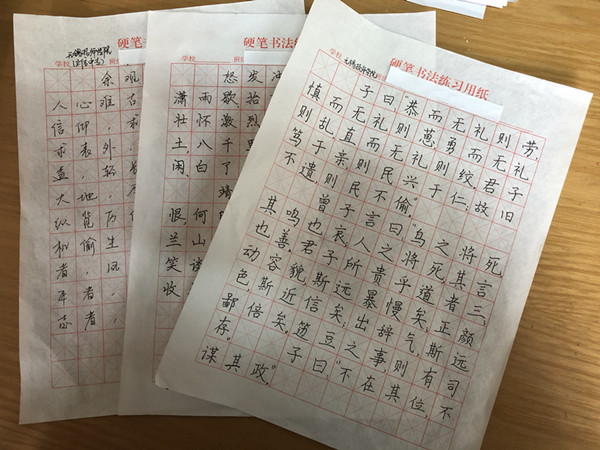 硬笔
学校 无锡技师学院
(立信中专)
余观
人心难古
信仰,
求表外,
益,
大地,
纵览历
偷生
者,
者,
者,
硬笔书法练
学校 班级
怒发冲
潇雨歇抬
壮怀激烈
土,八千里
闲,白了
靖
恨,何
兰山
笑谈
收
硬笔书法练习用纸
学校 无锡技师学院 班级
子曰:“恭而无礼则劳,
慎而无礼则葸,勇而无礼
则乱,直而无礼则绞。君子
笃于亲,则民兴于仁;故旧
不遗,则民不偷。”
曾子言曰:“鸟之将死,
其鸣也哀;人之将死,其言
也善。君子所贵乎道者三:
动容貌,斯远暴慢矣;正颜
色,斯近信矣;出辞气,斯远
鄙倍矣。笾豆之事,则有司
存。”子曰:“不在其位,不
谋其政。”